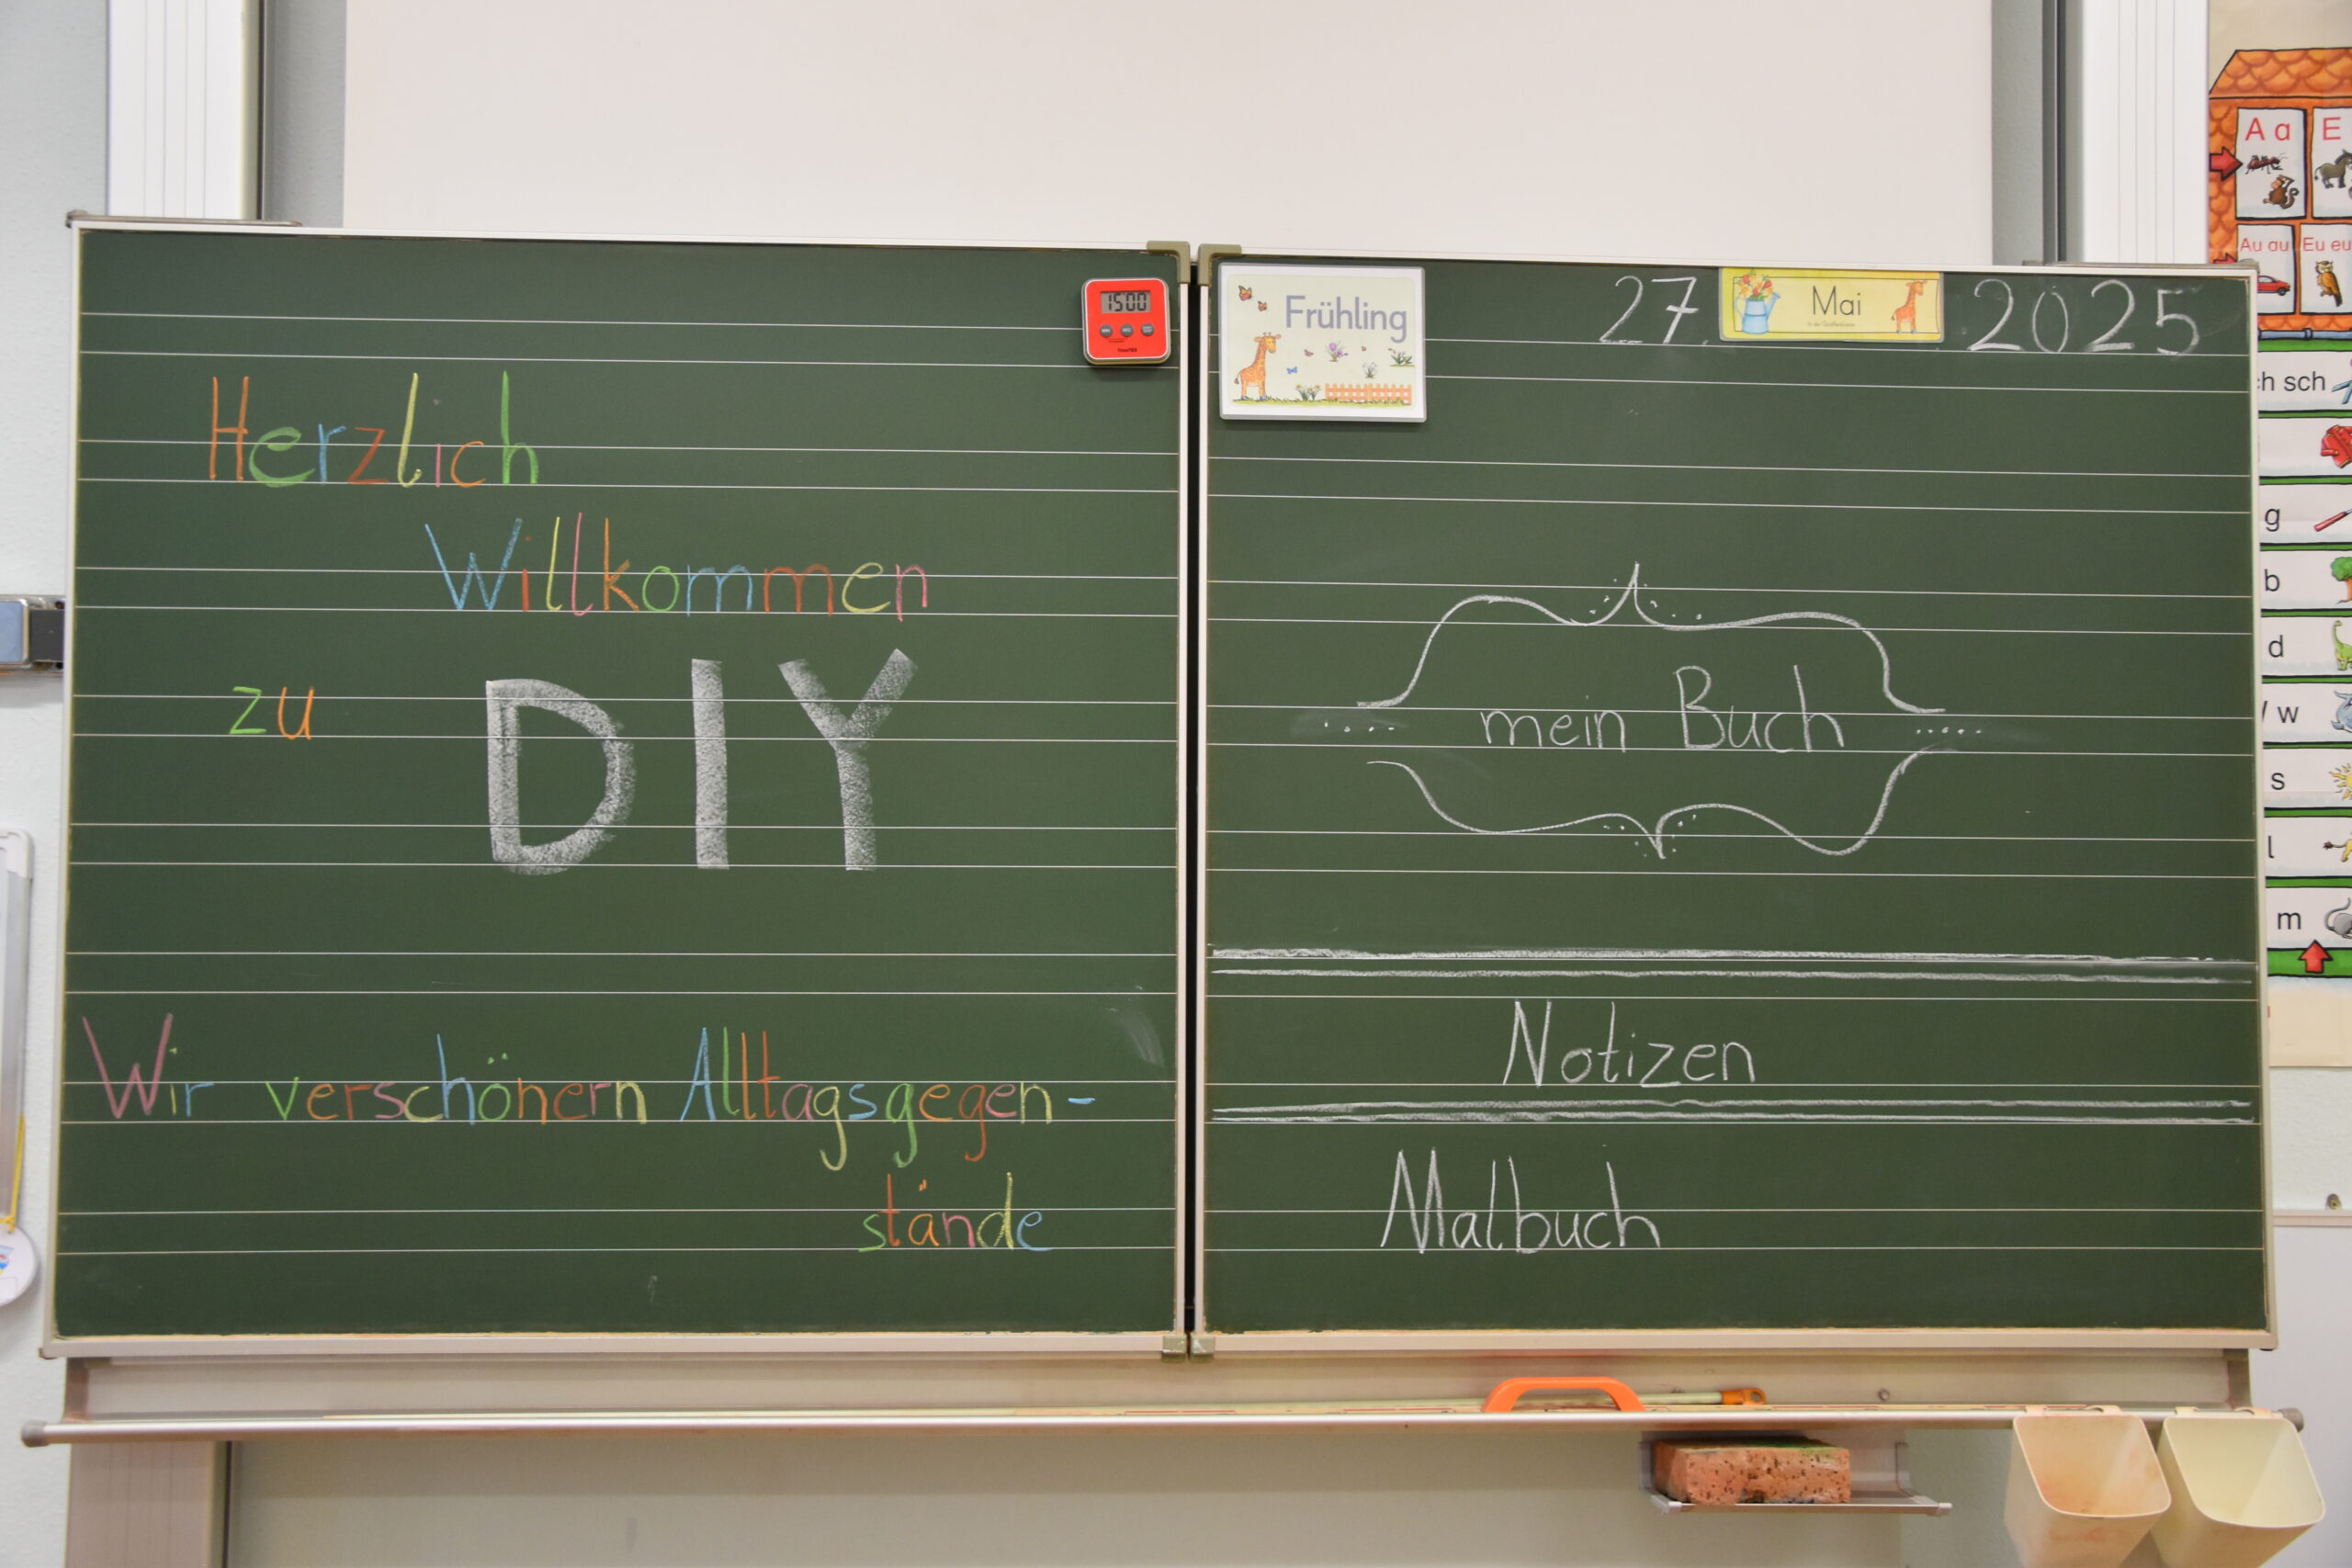 Herzlich
Willkommen
zu DIY
Wir verschönern Alltagsgegen-
stände
15:00
Frühling
27. Mai 2025
mein Buch
Notizen
Malbuch
A a E
Au au Eu eu
h sch
g
b
d
w
s
l
m